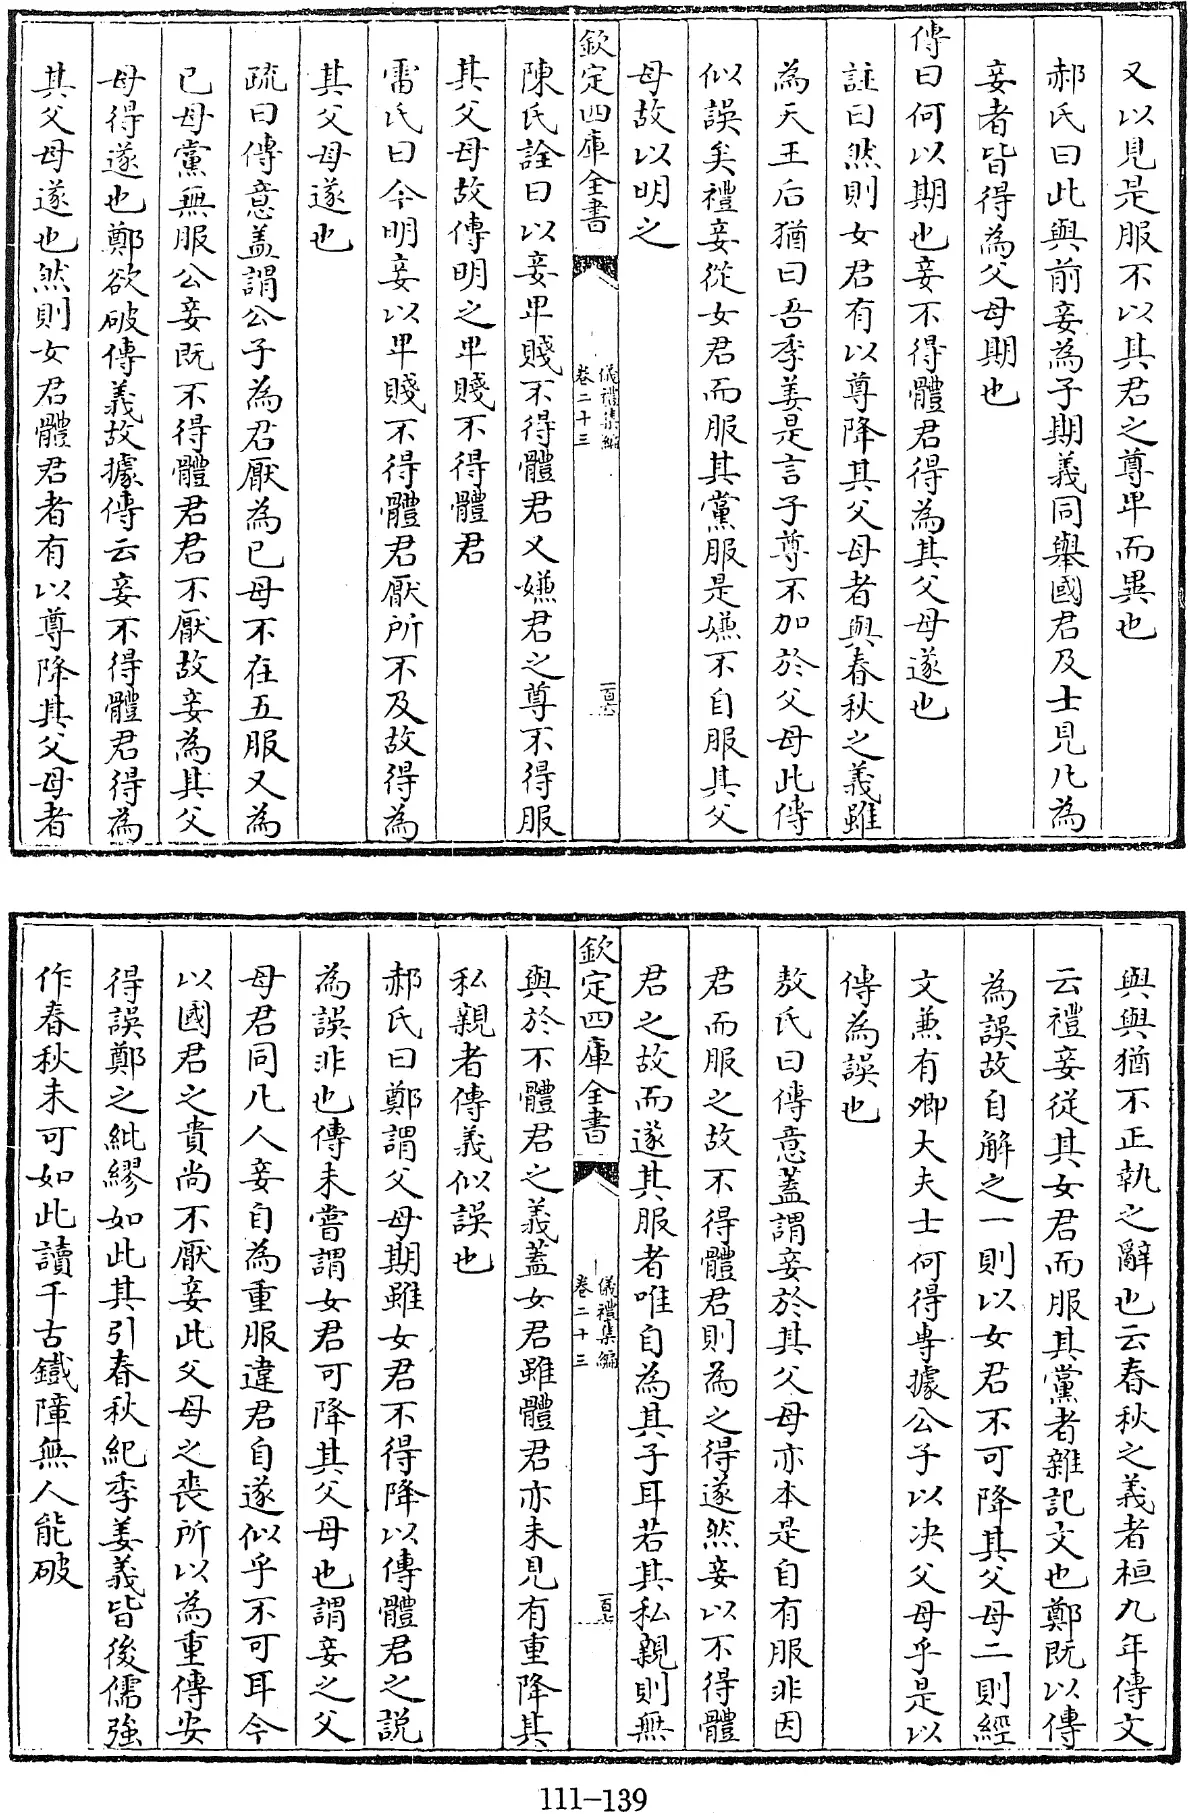 又以見是服不以其君之尊卑而異也
郝氏曰此與前妾為子期義同舉國君及士見凡為
妾者皆得為父母期也
傳曰何以期也妾不得體君得為其父母遂也
註曰然則女君有以尊降其父母者與春秋之義雖
為天王后猶曰吾季姜是言子尊不加於父母此傳
似誤矣禮妾從女君而服其黨服是嫌不自服其父
母故以明之
欽定四庫全書
儀禮集編
卷二十三
一百六
陳氏詮曰以妾卑賤不得體君又嫌君之尊不得服
其父母故傳明之卑賤不得體君
雷氏曰今明妾以卑賤不得體君厭所不及故得為
其父母遂也
疏曰傳意盖謂公子為君厭為已母不在五服又為
已母黨無服公妾既不得體君君不厭故妾為其父
母得遂也鄭欲破傳義故據傳云妾不得體君得為
其父母遂也然則女君體君者有以尊降其父母者
與與猶不正執之辭也云春秋之義者桓九年傳文
云禮妾從其女君而服其黨者雜記文也鄭既以傳
為誤故自解之一則以女君不可降其父母二則經
文兼有卿大夫士何得專據公子以决父母乎是以
傳為誤也
敖氏曰傳意蓋謂妾於其父母亦本是自有服非因
君而服之故不得體君則為之得遂然妾以不得體
君之故而遂其服者唯自為其子耳若其私親則無
欽定四庫全書
儀禮集編
卷二十三
一百七
與於不體君之義蓋女君雖體君亦未見有重降其
私親者傳義似誤也
郝氏曰鄭謂父母期雖女君不得降以傳體君之説
為誤非也傳未嘗謂女君可降其父母也謂妾之父
母君同凡人妾自為重服違君自遂似乎不可耳今
以國君之貴尚不厭妾此父母之喪所以為重傳安
得誤鄭之紕繆如此其引春秋紀季姜義皆後儒強
作春秋未可如此讀千古鐵障無人能破
111-139